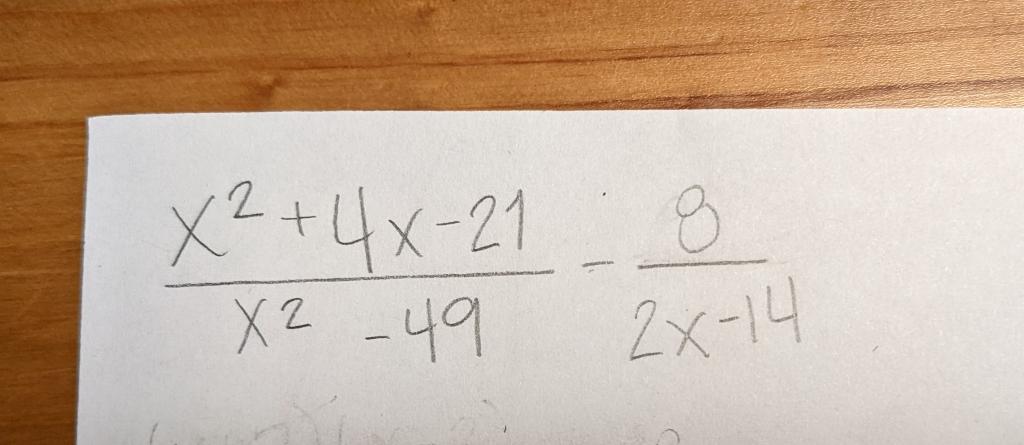 x² + 4x - 21 / x² - 49 - 8 / 2x - 14